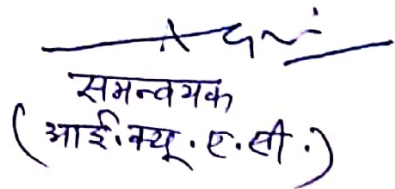 समन्वयक
(आई.क्यू.ए.सी.)